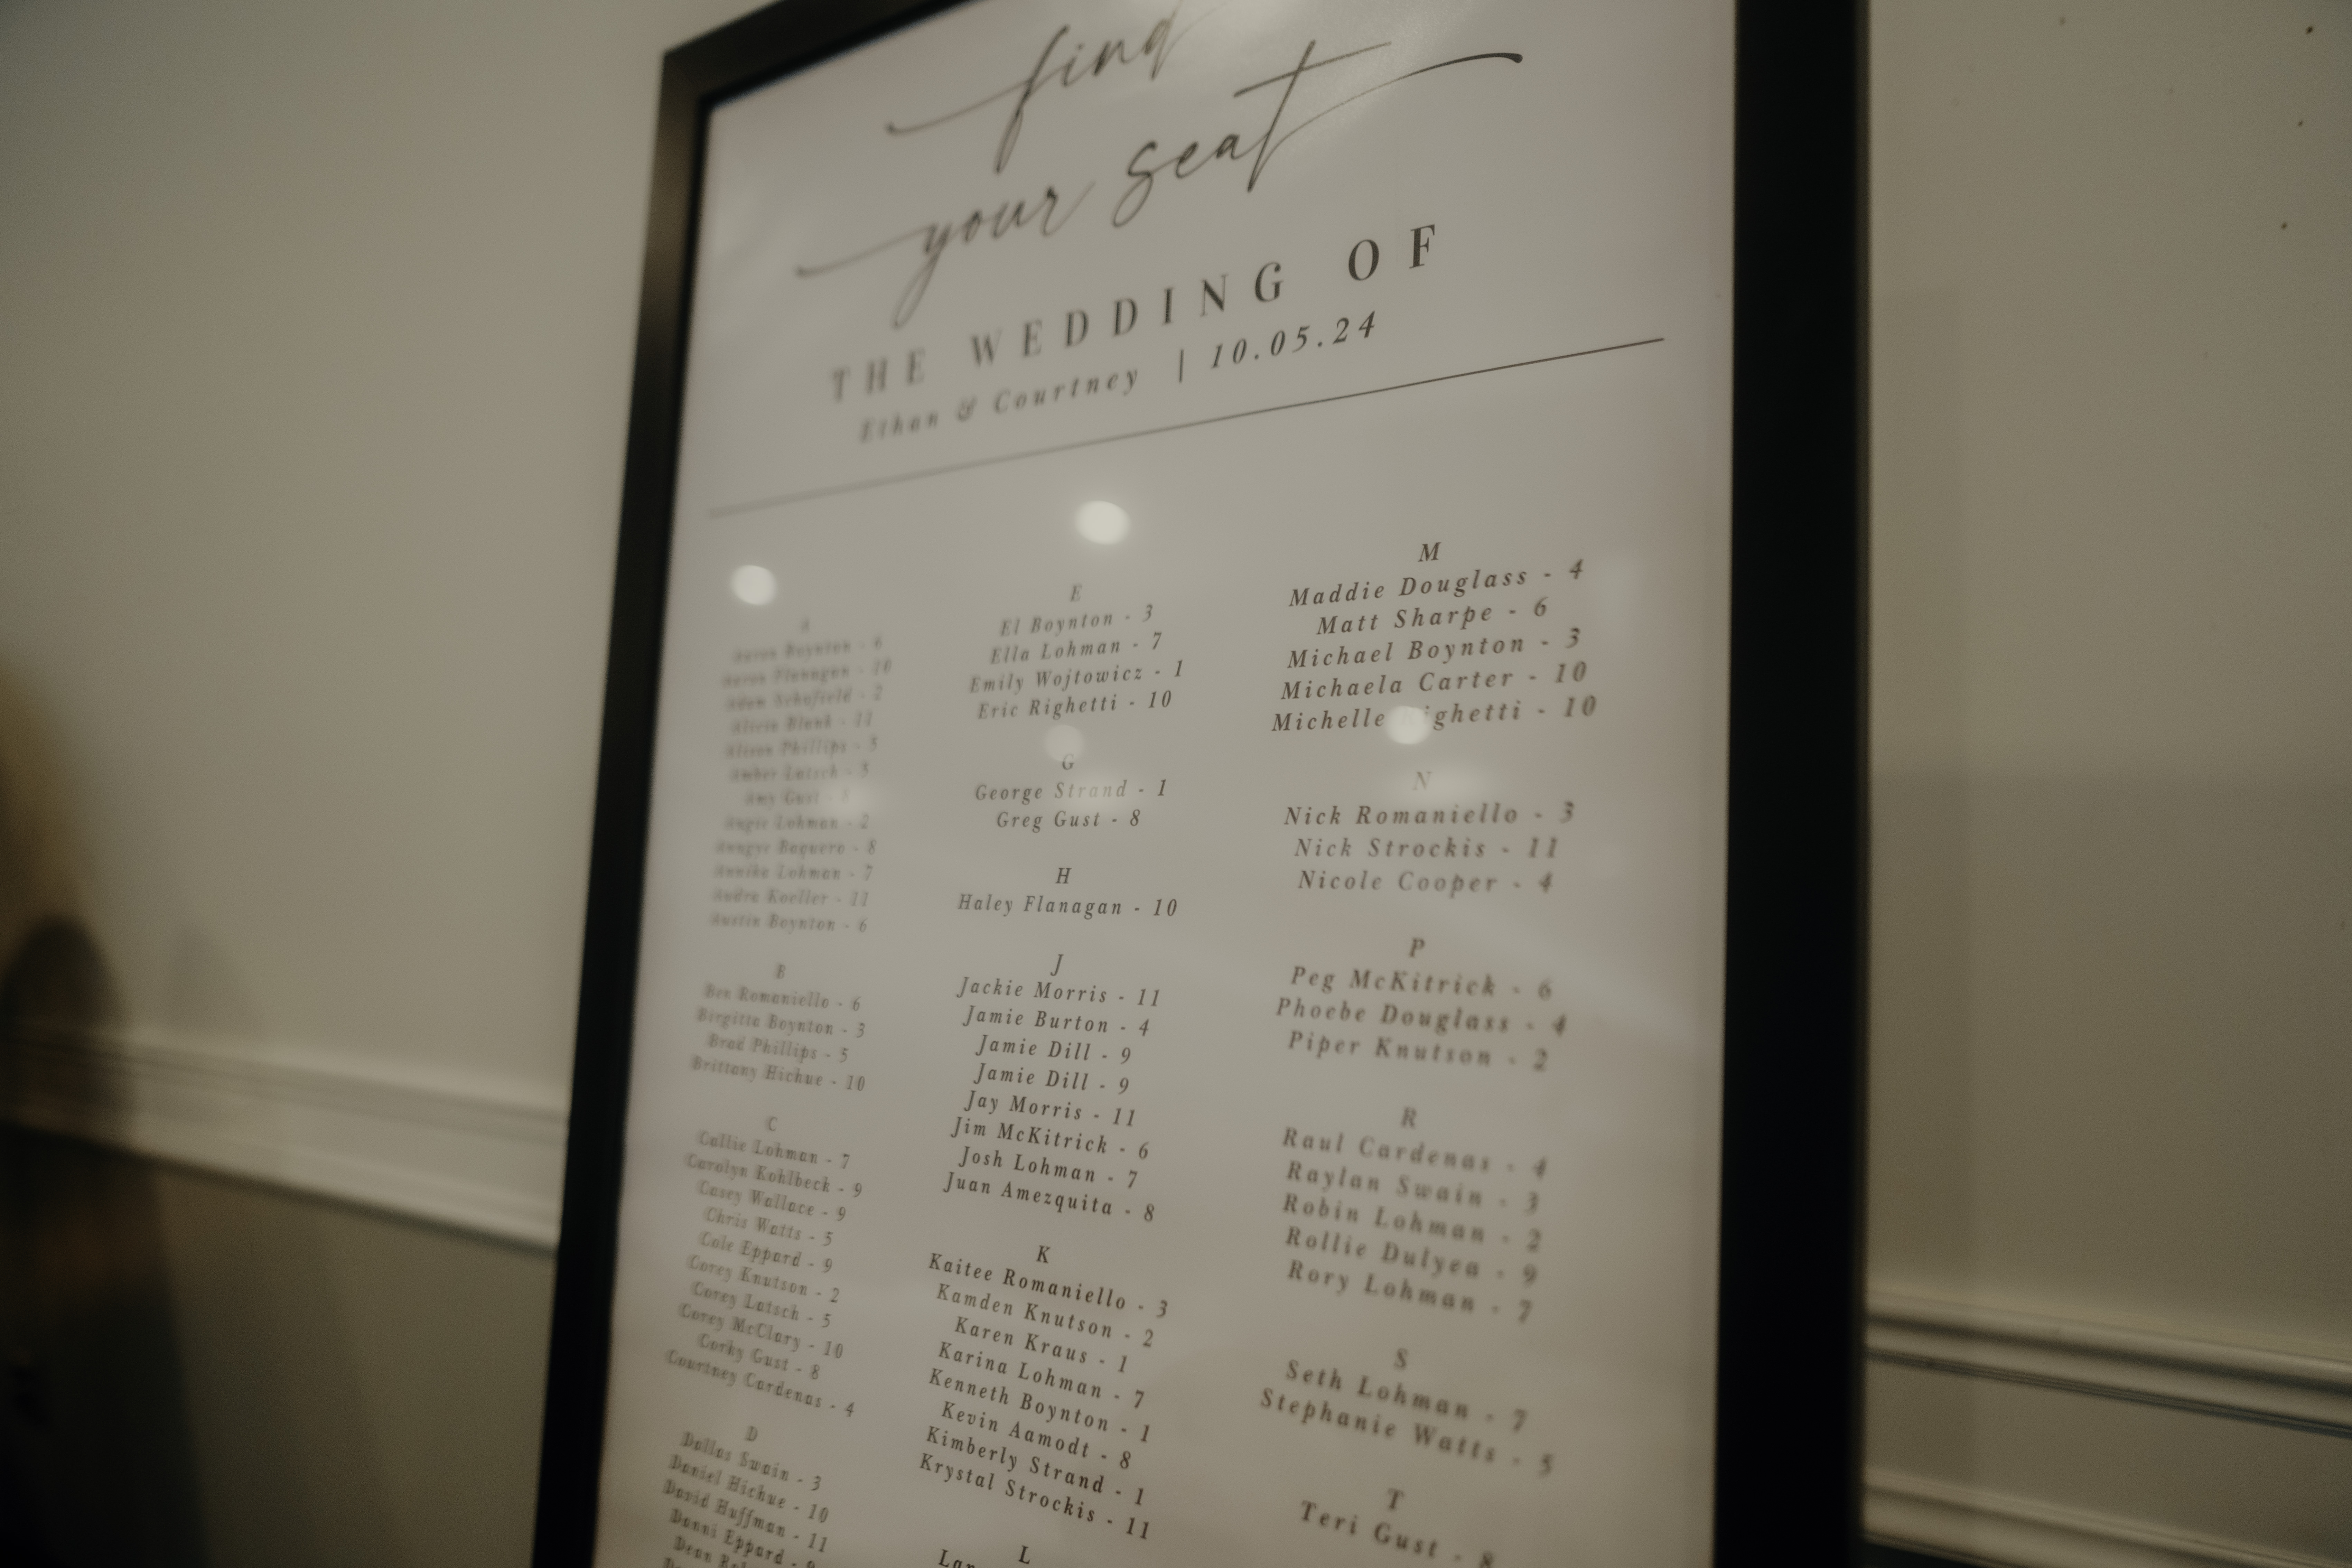 find
your seat
THE WEDDING OF
Ethan & Courtney | 10.05.24
A
Aaron Boynton - 6
Aaron Flanagan - 10
Adam Schofield - 2
Alicia Blank - 11
Alison Phillips - 5
Amber Latsch - 5
Amy Gust - 8
Angie Lohman - 2
Baquero - 8
Annika Lohman - 7
Audra Koeller - 11
Austin Boynton - 6
B
Ben Romaniello - 6
Birgitta Boynton - 3
Brad Phillips - 5
Brittany Hichue - 10
C
Callie Lohman - 7
Carolyn Kohlbeck - 9
Casey Wallace - 9
Chris Watts - 5
Cole Eppard - 9
Corey Knutson - 2
Corey Latsch - 5
Corey McClary - 10
Corky Gust - 8
Courtney Cardenas - 4
D
Dallas Swain - 3
Daniel Hichue - 10
David Huffman - 11
Danni Eppard - 9
Dean
E
El Boynton - 3
Ella Lohman - 7
Emily Wojtowicz - 1
Eric Righetti - 10
G
George Strand - 1
Greg Gust - 8
H
Haley Flanagan - 10
J
Jackie Morris - 11
Jamie Burton - 4
Jamie Dill - 9
Jamie Dill - 9
Jay Morris - 11
Jim McKitrick - 6
Josh Lohman - 7
Juan Amezquita - 8
K
Kaitee Romaniello - 3
Kamden Knutson - 2
Karen Kraus - 1
Karina Lohman - 7
Kenneth Boynton - 1
Kevin Aamodt - 8
Kimberly Strand - 1
Krystal Strockis - 11
L
M
Maddie Douglass - 4
Matt Sharpe - 6
Michael Boynton - 3
Michaela Carter - 10
Michelle Righetti - 10
N
Nick Romaniello - 3
Nick Strockis - 11
Nicole Cooper - 4
P
Peg McKitrick - 6
Phoebe Douglass - 4
Piper Knutson - 2
R
Raul Cardenas - 4
Raylan Swain - 3
Robin Lohman - 2
Rollie Dulyea - 9
Rory Lohman - 7
S
Seth Lohman - 7
Stephanie Watts - 5
T
Teri Gust - 8